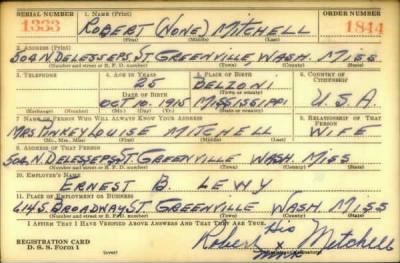 SERIAL NUMBER 1. NAME (Print) ORDER NUMBER
1333 ROBERT (NONE) MITCHELL 1844
(First) (Middle) (Last)
2. ADDRESS (Print)
504 N DELESSEPS ST GREENVILLE WASH. MISS
(Number and street or R. F. D. number) (Town) (County) (State)
3. TELEPHONE 4. AGE IN YEARS 5. PLACE OF BIRTH 6. COUNTRY OF CITIZENSHIP
25 BELZONI
DATE OF BIRTH (Town or county)
OCT 10 1915 MISSISSIPPI U.S.A.
(Exchange) (Number) (Mo.) (Day) (Yr.) (State or country)
7. NAME OF PERSON WHO WILL ALWAYS KNOW YOUR ADDRESS 8. RELATIONSHIP OF THAT PERSON
MRS PINKEY LOUISE MITCHELL WIFE
(Mr., Mrs., Miss) (First) (Middle) (Last)
9. ADDRESS OF THAT PERSON
504 N. DELESSEPS ST GREENVILLE WASH MISS
(Number and street or R. F. D. number) (Town) (County) (State)
10. EMPLOYER'S NAME
ERNEST B. LEWY
11. PLACE OF EMPLOYMENT OR BUSINESS
614 S. BROADWAY ST. GREENVILLE WASH. MISS
(Number and street or R. F. D. number) (Town) (County) (State)
I AFFIRM THAT I HAVE VERIFIED ABOVE ANSWERS AND THAT THEY ARE TRUE.
REGISTRATION CARD
D. S. S. Form 1
Robert His x Mitchell